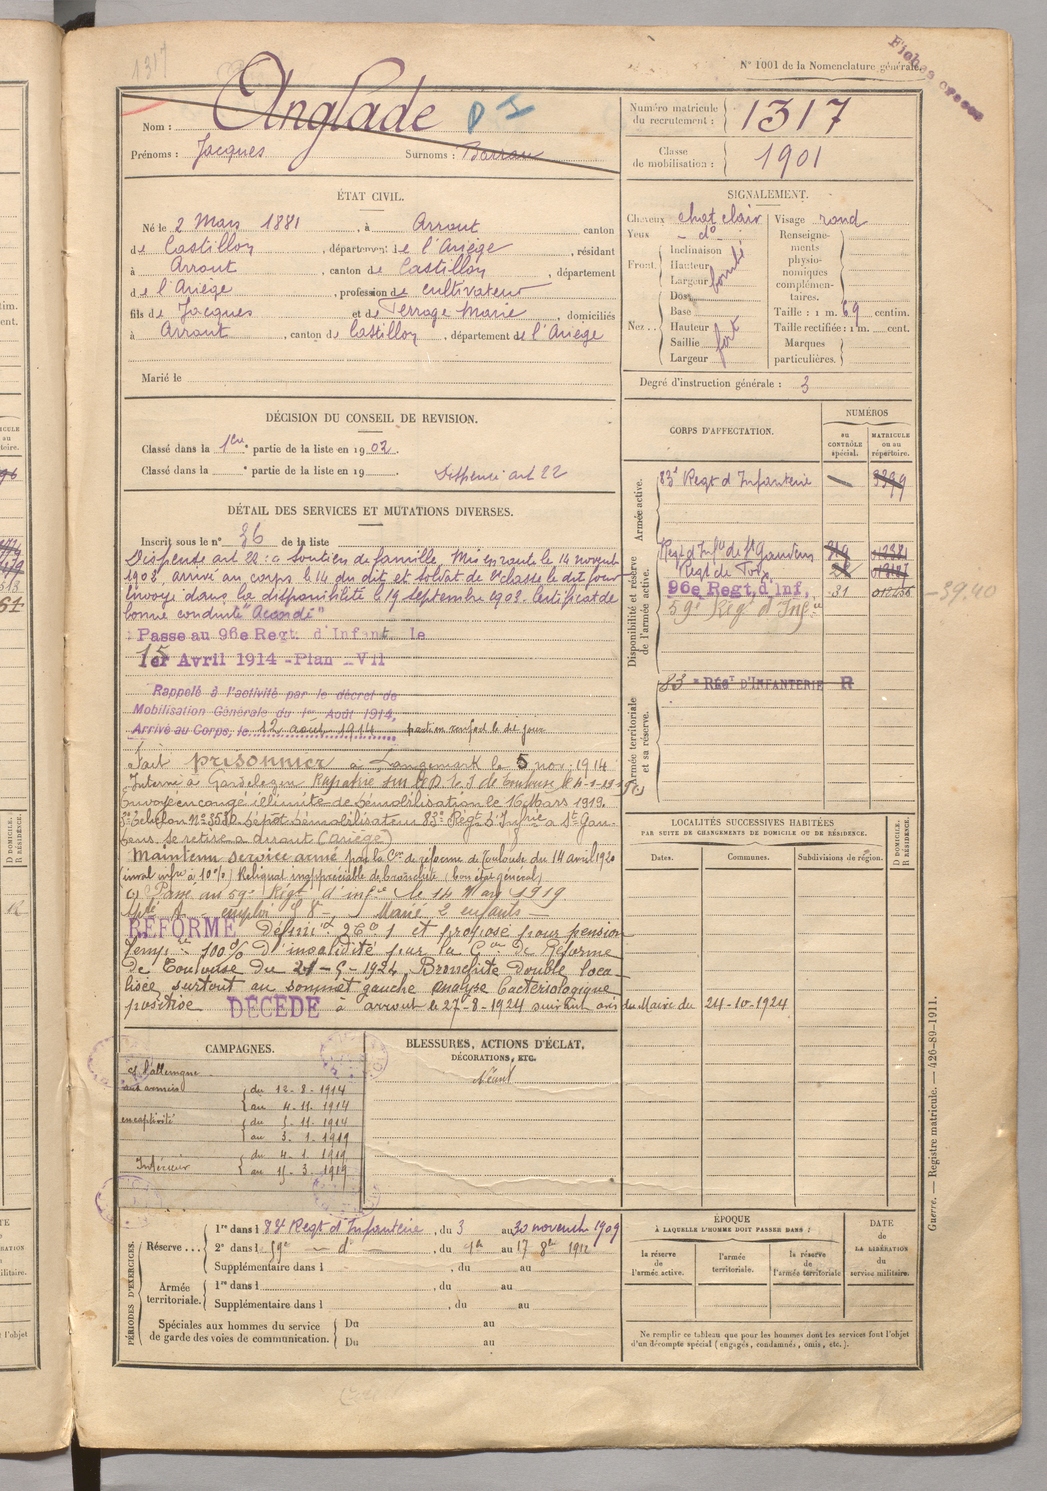 1317
N° 1001 de la Nomenclature générale.
Fiches
Nom : Anglade
Prénoms : Jacques Surnoms : Barrau
Numéro matricule du recrutement : 1317
Classe de mobilisation : 1901
ÉTAT CIVIL.
Né le 2 Mars 1881, à Arrout canton
de Castillon, département de l'Ariège, résidant
à Arrout, canton de Castillon, département
de l'Ariège, profession de cultivateur
fils de Jacques et de Terrage Marie domiciliés
à Arrout, canton de Castillon, département de l'Ariège
Marié le
SIGNALEMENT.
Cheveux chat clair
Yeux d°
Front
Inclinaison
Hauteur
Largeur
bombé
Nez
Dos
Base
Hauteur
Saillie
Largeur
fort
Visage rond
Renseignements physionomiques complémentaires.
Taille : 1 m. 69 centim.
Taille rectifiée : 1 m. cent.
Marques particulières.
Degré d'instruction générale : 3
DÉCISION DU CONSEIL DE REVISION.
Classé dans la 1ère partie de la liste en 1902.
Classé dans la partie de la liste en 19
Dispensé art 22
CORPS D'AFFECTATION.
NUMÉROS
au CONTRÔLE spécial.
MATRICULE ou au répertoire.
Armée active.
83e Regt d'Infanterie
Disponibilité et réserve de l'armée active.
Regt d'Infie de St Gaudens
Regt de
96e Regt. d'Inf. 31
59e Regt d'Infie
39.40
Armée territoriale et sa réserve.
83e RÉGt D'INFANTERIE R
DÉTAIL DES SERVICES ET MUTATIONS DIVERSES.
Inscrit sous le n° 36 de la liste
Dispensé art 22 : a soutien de famille. Mis en route le 14 novemb
1902, arrivé au corps le 14 du dit et soldat de 2e classe le dit jour
Envoyé dans la disponibilité le 19 septembre 1903. Certificat de
bonne conduite "Accordé"
Passé au 96e Regt. d'Infant. le
1er Avril 1914 - Plan XVII
15
Rappelé à l'activité par le décret de
Mobilisation Générale du 1er Août 1914,
Arrivé au Corps, le 12 août 1914 parti en renfort le dit jour
Fait prisonnier à Langemark le 5 nov. 1914
Interné à Gardelegen Rapatrié
Envoyé en congé illimité de démobilisation le 16 Mars 1919.
3e échelon n° 3580 Dépôt démobilisateur 83e Regt d'Infrie à St Gau-
dens se retire à Arrout (Ariège)
Maintenu service armé par la Con de réforme de Toulouse du 14 avril 1920
inval infre à 10%) Reliquat inappréciable de bronchite (bon état général)
Passé au 59e Régt d'infie le 14 Mars 1919
Marié 2 enfants
RÉFORMÉ Défini et proposé pour pension
temp re 100% d'invalidité par la Con de Réforme
de Toulouse du 21-5-1924, Bronchite double loca-
lisée surtout au sommet gauche analyse bactériologique
positive DÉCÉDÉ à Arrout le 27-8-1924 suivant avis du Maire du 24-10-1924
LOCALITÉS SUCCESSIVES HABITÉES
PAR SUITE DE CHANGEMENTS DE DOMICILE OU DE RÉSIDENCE.
Dates. Communes. Subdivisions de région. D DOMICILE. R RÉSIDENCE.
CAMPAGNES.
ct l'allemagne
aux armées du 12-8-1914
au 4-11-1914
en captivité du 5-11-1914
au 3-1-1919
Intérieur du 4-1-1919
au 15-3-1919
BLESSURES, ACTIONS D'ÉCLAT,
DÉCORATIONS, ETC.
Néant
PÉRIODES D'EXERCICES.
Réserve
1re dans l 83e Regt d'Infanterie, du 3 au 30 novemb 1909
2e dans l 59e d°, du 1er au 17 8bre 1912
Supplémentaire dans l , du au
Armée territoriale.
1re dans l , du au
Supplémentaire dans l , du au
Spéciales aux hommes du service de garde des voies de communication.
Du au
Du au
ÉPOQUE
À LAQUELLE L'HOMME DOIT PASSER DANS :
la réserve de l'armée active.
l'armée territoriale.
la réserve de l'armée territoriale
DATE de LA LIBÉRATION du service militaire.
Ne remplir ce tableau que pour les hommes dont les services font l'objet
d'un décompte spécial (engagés, condamnés, omis, etc.).
Guerre. — Registre matricule. — 426-89-1911.